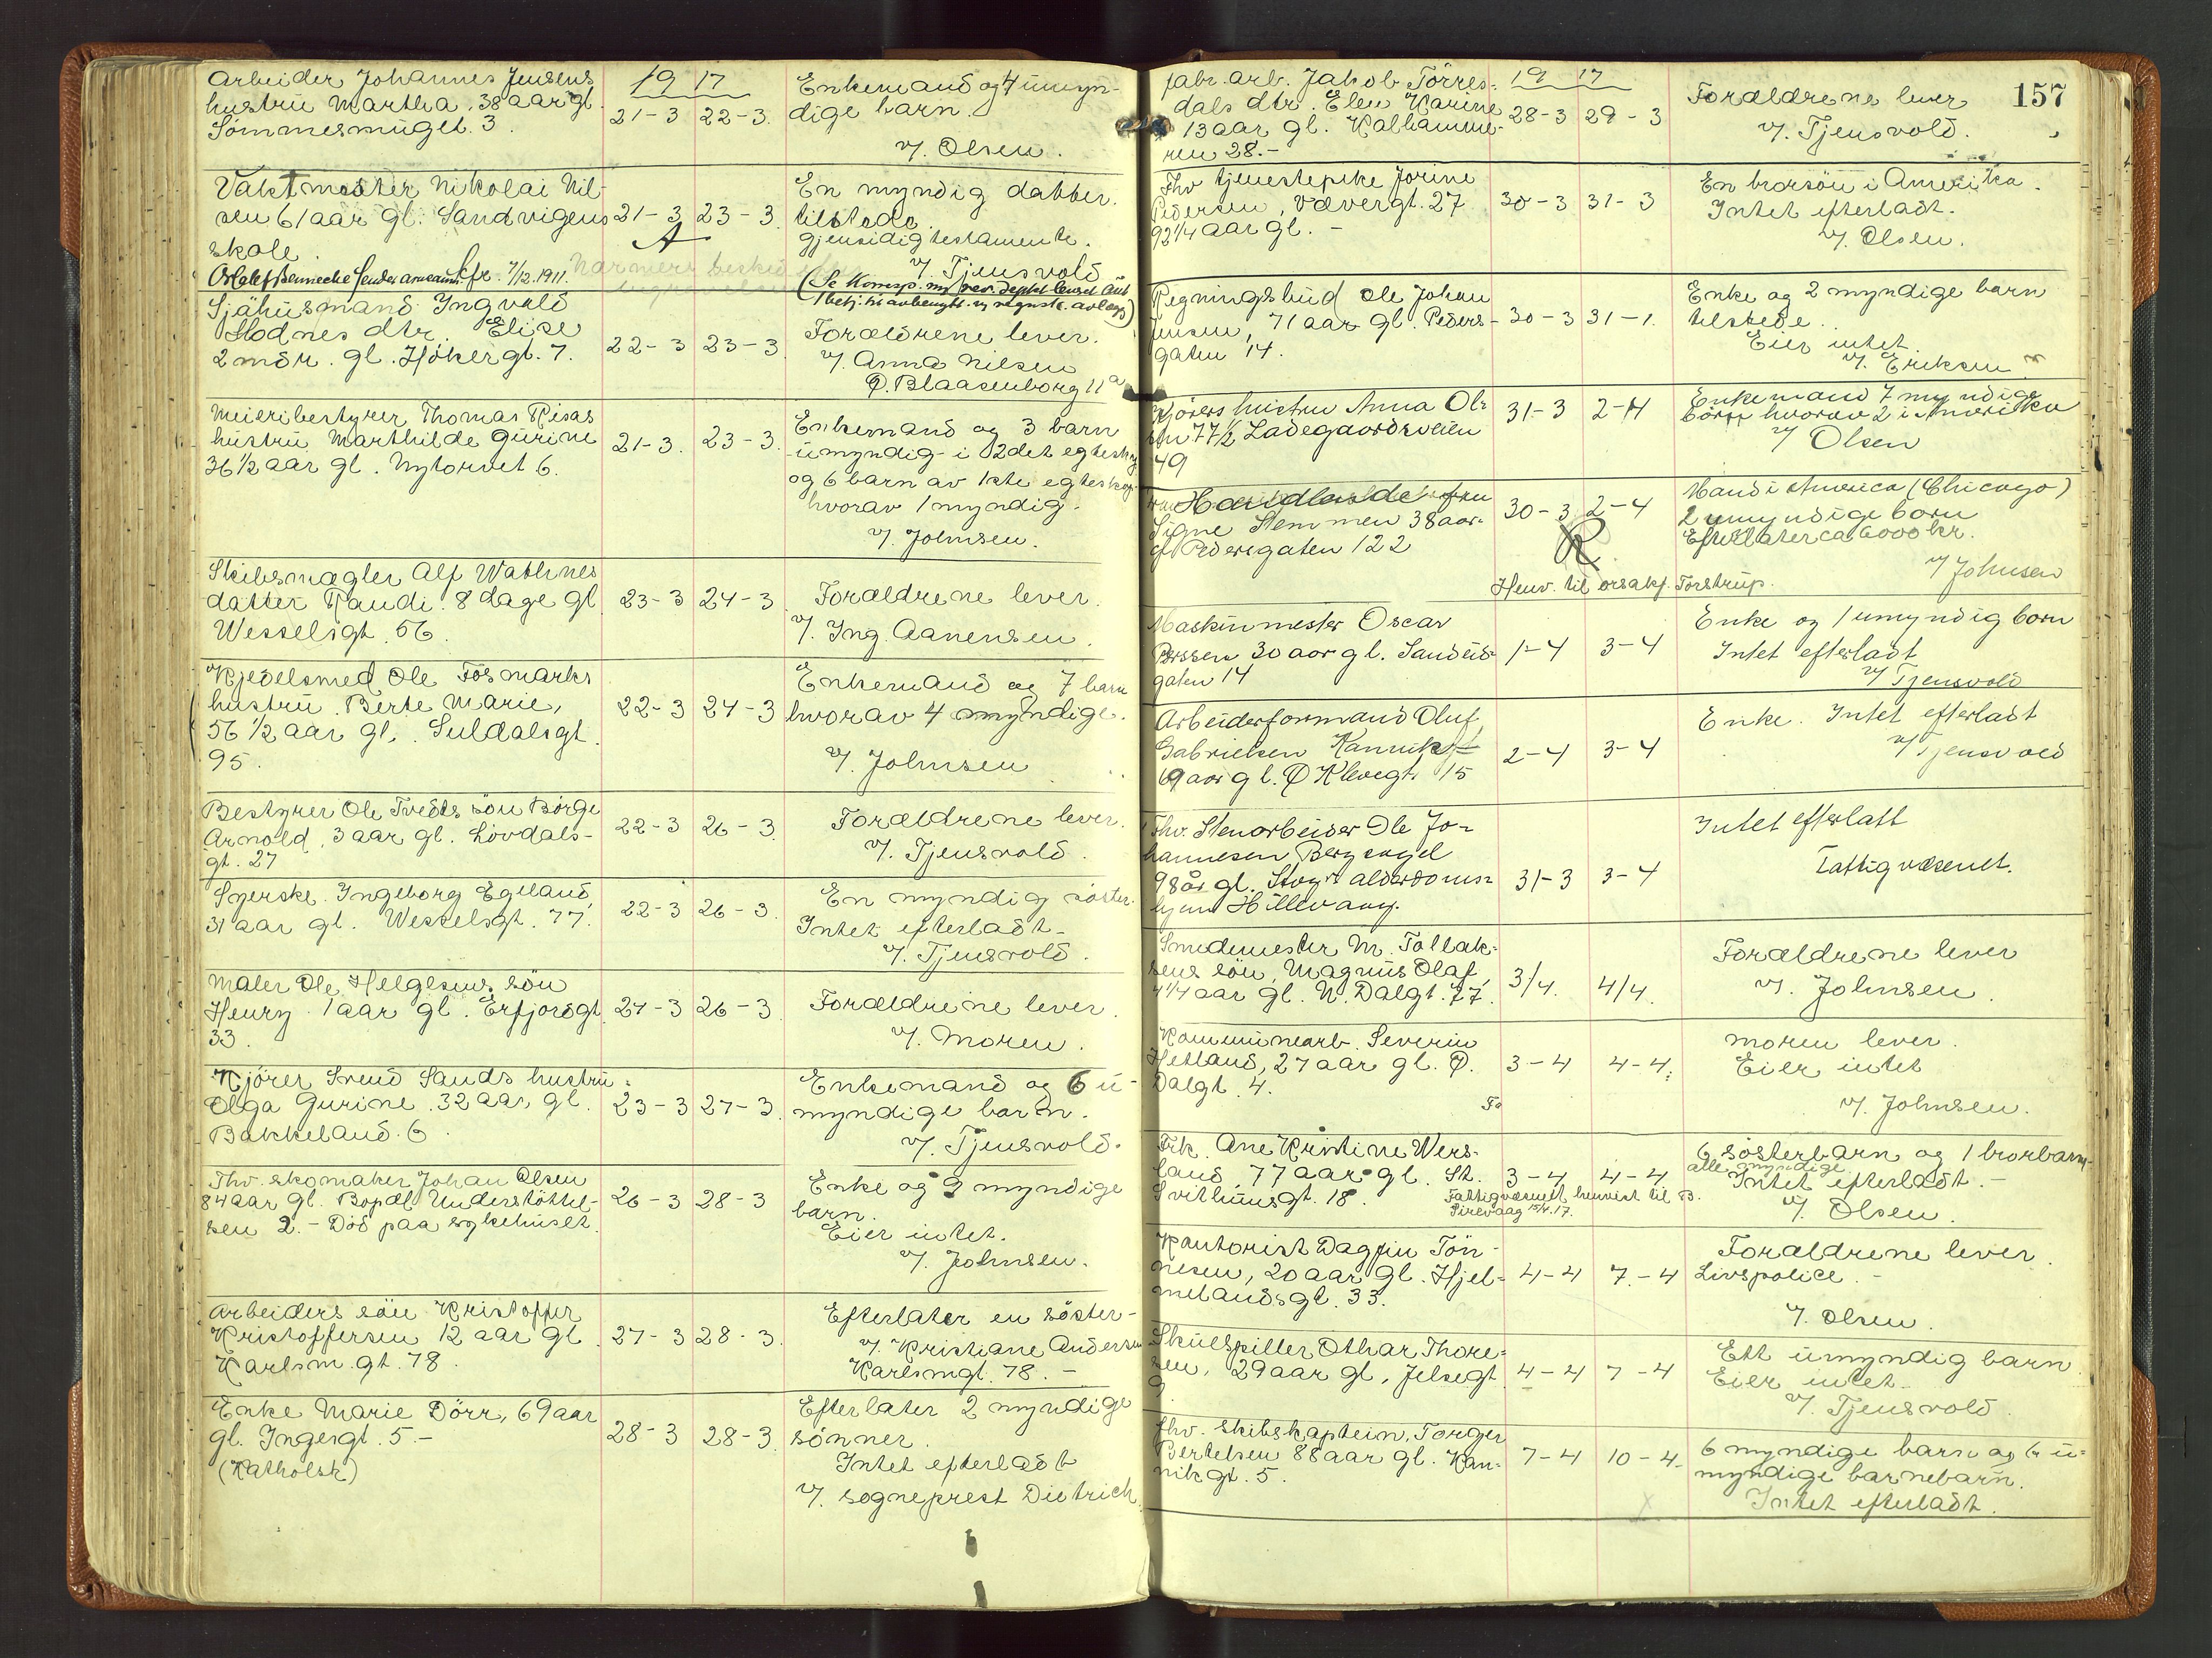 Arbeider Johannes Jensens
hustru Martha, 38 aar gl.
Sömmesmuget. 3.
19 17
21-3 22-3.
Enkemand og 4 umyn-
dige barn.
v/. Olsen.
Vaktmester Nikolai Nil-
sen 61 aar gl. Sandvigens
skole.
21-3 23-3.
En myndig datter.
tilstede.
gjensidig testamente.
v/. Tjensvold
7/12. 1911.
Sjöhusmand Ingvald
Hodnes dtr Elise
2 mdr. gl. Hökergt. 7.
22-3 23-3
Forældrene lever.
v/. Anna Nilsen
Ø. Blaasenborg 11a
Meieribestyrer Thomas Risas
hustru Marthilde Gurine
36 1/2 aar gl. Nytorvet 6.
21-3. 23-3.
Enkemand og 3 barn
umyndig i 2det egtesk.
og 6 barn av 1ste egteskap
hvorav 1 myndig.
v/. Johnsen.
Skibsmægler Alf Wathnes
datter Randi. 8 dage gl
Wesselsgt. 56.
23-3 24-3.
Forældrene lever.
v/. Ing. Aanensen.
Kjedelsmed Ole Fosmarks
hustru Berte Marie,
56 1/2 aar gl. Suldalsgt.
95.
22-3 24-3
Enkemand og 7 barn
hvorav 4 myndige.
v/. Johnsen
Bestyrer Ole Tvedts sön Börge
Arnold, 3 aar gl. Lövdals-
gt. 27
22-3 26-3.
Forældrene lever.
v/. Tjensvold.
Syerske Ingeborg Egeland,
31 aar gl. Wesselsgt. 77.
22-3 26-3.
En myndig söster.
Intet efterladt.
v/. Tjensvold.
Maler Ole Helgesens sön
Henry 1 aar gl. Erfjordgt.
33.
24-3 26-3.
Forældrene lever.
v/. Moren.
Kjörer Svend Sands hustru
Olga Gurine. 32 aar gl.
Bakkeland. 6.
23-3 27-3.
Enkemand og 6 u-
myndige barn.
v/. Tjensvold.
Fhv. skomaker Johan Olsen
84 aar gl. Bopæl Understöttel-
sen 2. - Död paa sykehuset.
26-3 28-3
Enke og 2 myndige
barn.
Eier intet.
v/. Johnsen.
Arbeiders sön Kristoffer
Kristoffersen 12 aar gl
Karlsm. gt. 78.
27-3 28-3.
Efterlater en söster-
v/. Kristiane Andersen
Karlsmgt. 78. -
Enke Marie Dörr, 69 aar
gl. Ingersgt. 5. -
(Katholsk)
28-3 28-3.
Efterlater 2 myndige
sönner.
Intet efterladt
v/. sogneprest Dietrich
157
Fabr. arb. Jakob Törres-
dals dtr. Elen Karine
13 aar gl. Kalhamme-
ren 28. -
19 17
28-3 29-3
Forældrene lever
v/. Tjensvold.
Fhv tjenestepike Jorine
Pedersen, Vævergt. 27
92 1/4 aar gl. -
30-3 31-3
En brorsön i Amerika.
Intet efterladt.
v/. Olsen.
Regningsbud Ole Johan
Jensen, 71 aar gl. Peders-
gaten 14.
30-3 31-1.
Enke og 2 myndige barn
tilstede.
Eier intet.
v/. Eriksen
Kjörers hustru Anna Ol-
sen 77 1/2 Ladegaardsveien
49
31-3 2-4
Enkemand 7 myndige
börn hvorav 2 i Amerika
v/ Olsen
fru
Signe Stemmen 38 aar
gl Pedersgaten 122
30-3 2-4
R
Henv. til orsakf. Forstrup.
Mand i America (Chicago)
2 umyndige born
Efterlater ca 6000 kr.
v/ Johnsen
Maskinmester Oscar
Perssen 30 aar gl. Sandeid-
gaten 14
1-4 3-4
Enke og 1 umyndig born
Intet efterladt
v/ Tjensvold
Arbeiderformand Oluf
Gabrielsen Kannik
69 aar gl. Ø Klevegt 15
2-4 3-4
Enke. Intet efterladt
v/ Tjensvold
Fhv. Stenarbeider Ole Jo-
hannesen Bergsagel
98 år gl. Stav. alderdoms-
hjem Hillevaag.
31-3 3-4
Intet efterlatt
Fattigvæsenet.
Smedemester M. Tallak-
sens sön, Magnus Olaf,
4 1/4 aar gl. N. Dalgt. 77.
3/4. 4/4.
Forældrene lever
v/. Johnsen.
Kommunearb. Severin
Hetland, 27 aar gl. Ø.
Dalgt. 4.
3-4 4-4.
Fa
moren lever.
Eier intet
v/. Johnsen.
Frk. Ane Kristine Wers-
land, 77 aar gl. St.
Svithunsgt. 18.
3-4 4-4
Fattigvæsenet henvist til B.
Sirevaag 15/4. 17.
6 sösterbarn og 1 brorbarn
alle myndige
Intet efterladt. -
v/. Olsen.
Kontorist Dagfin Tön-
nesen, 20 aar gl. Hjel-
melandsgt. 33.
4-4 7.-4
Forældrene lever.
Livspolice. -
v/. Olsen.
Skuespiller Othar Thore-
sen, 29 aar gl, Jelsegt.
9.
4-4 7-4
Ett umyndig barn
Eier intet.
v/. Tjensvold.
fhv. skibskaptein, Torger
Bertelsen 88 aar gl. Kan-
nikgt. 5.
7-4 10-4.
6 myndige barn og 6 u-
myndige barnebarn.
Intet efterladt.